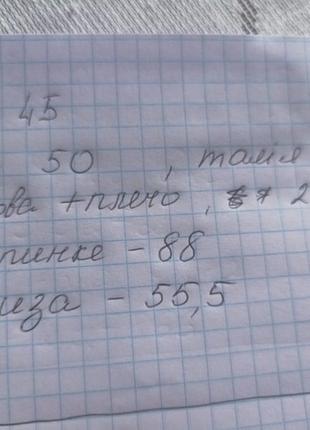 45
50 , талія
ова + плечо , 2
пинке - 88
иза - 55,5